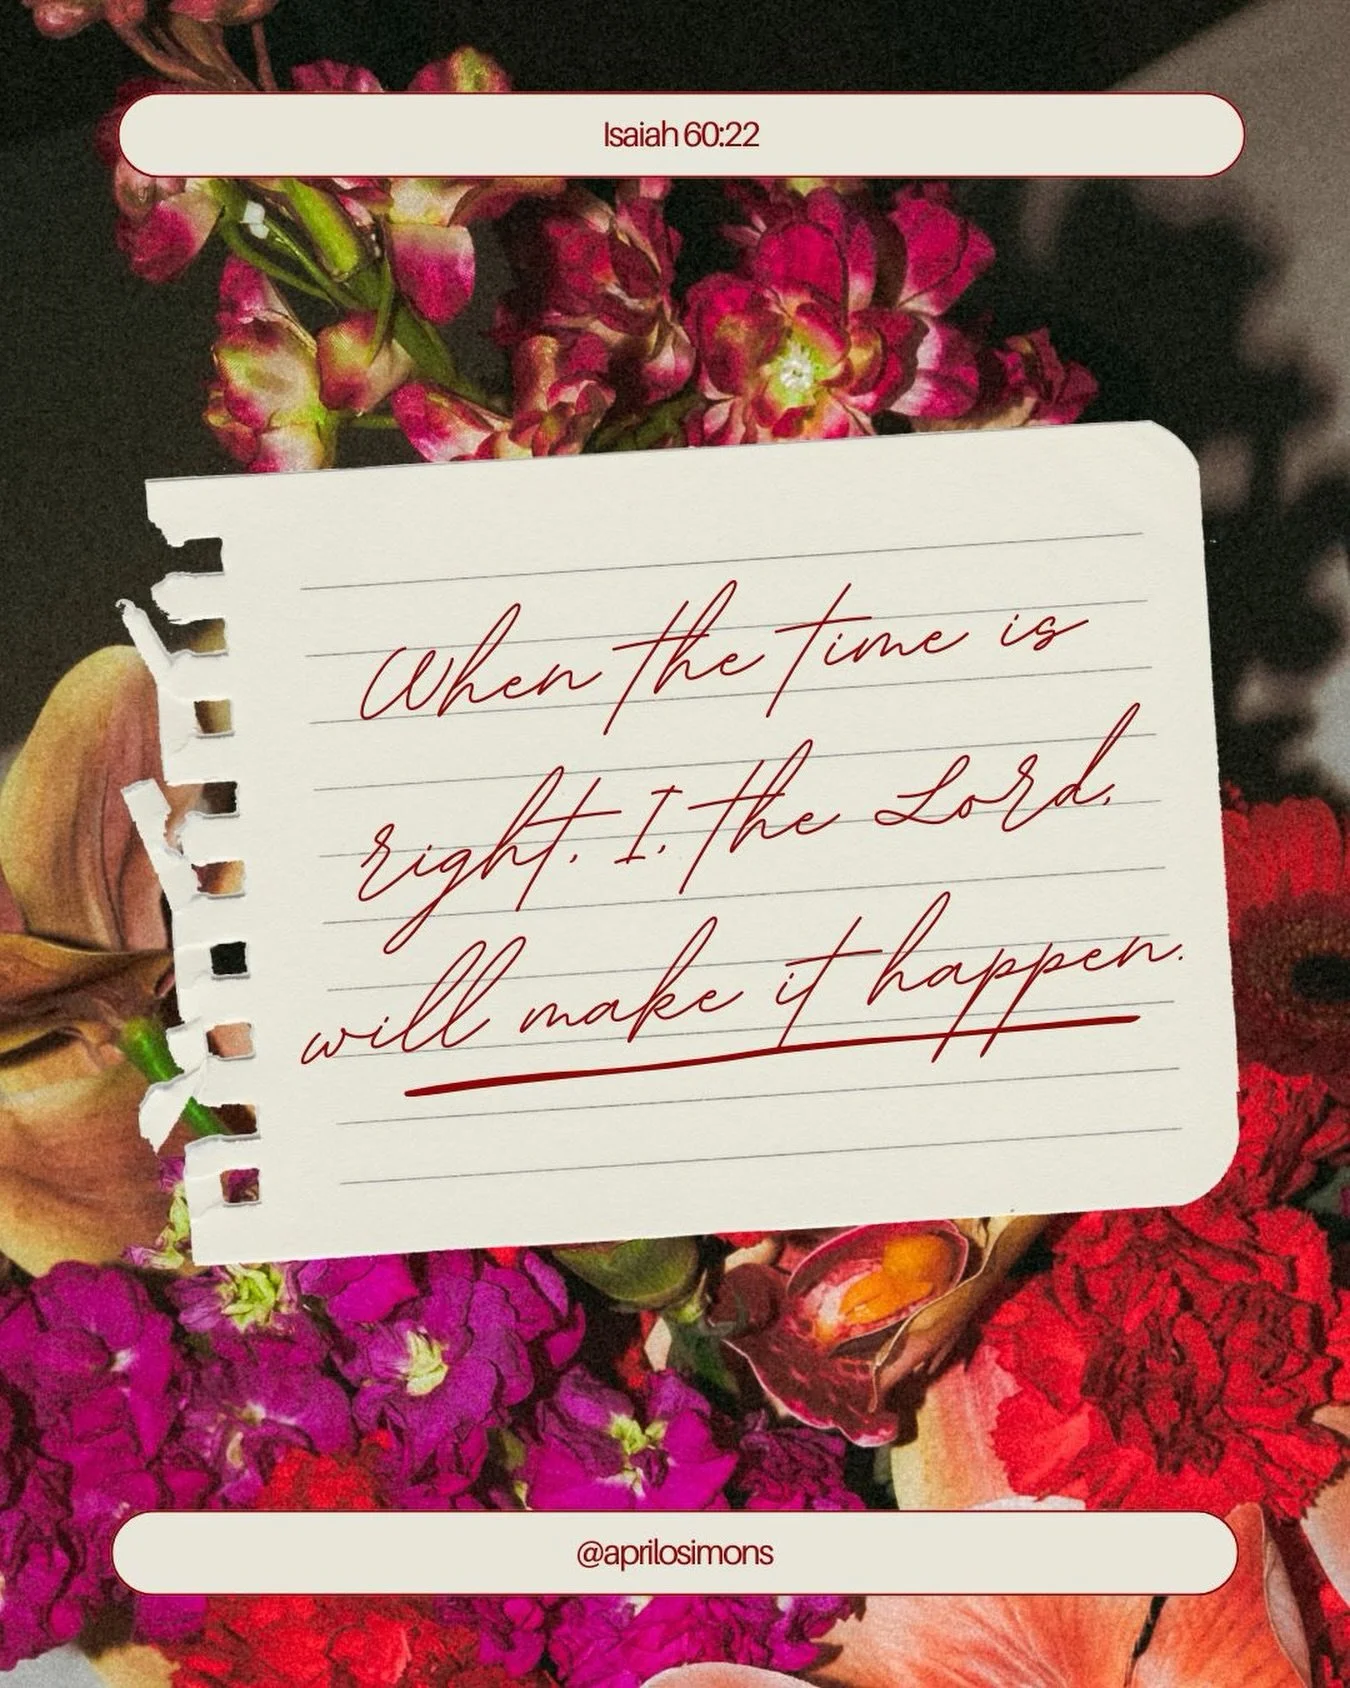 Isaiah 60:22
When the time is
right, I, the Lord,
will make it happen.
@aprilosimons